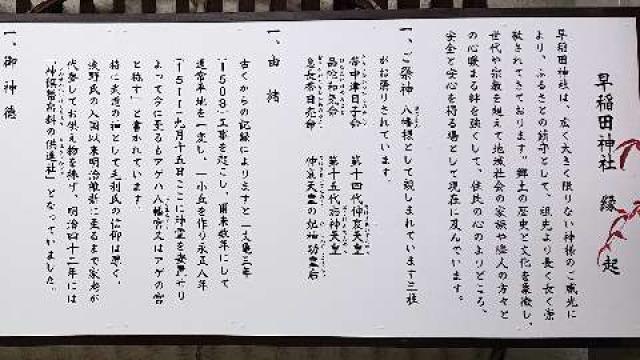 早稲田神社 縁起
早稲田神社は、広く大きく限りない神様のご威光に
より、ふるさとの鎮守として、祖先より長く長く崇
敬されてきております。郷土の歴史と文化を象徴し、
世代や宗教を超えて地域社会の家族や隣人の方々と
の心暖まる絆を強くして、住民の心のよりどころ、
安全と安心を得る場として現在に及んでいます。
一、ご祭神 八幡様として親しまれています三柱
がお祭りされています。
帯中津日子命 第十四代仲哀天皇
品陀和気命 第十五代応神天皇
息長帯日売命 仲哀天皇の妃神功皇后
一、由緒
古くからの記録によりますと一文亀三年
(1503)工事を起こし、爾来数年にして
通常平地を一変し、一小丘を作り永正八年
(1511)九月十五日ここに神霊を安置せり
よって今に至るもアゲハ八幡宮又はアゲの宮
と称す」と書かれています。
特に武道の神として毛利氏の信仰は厚く、
浅野氏の入国以来明治維新に至るまで家老が
代参してお供え物を捧げ、明治四十二年には
「神饌幣帛料の供進社」となっていました。
一、御神徳